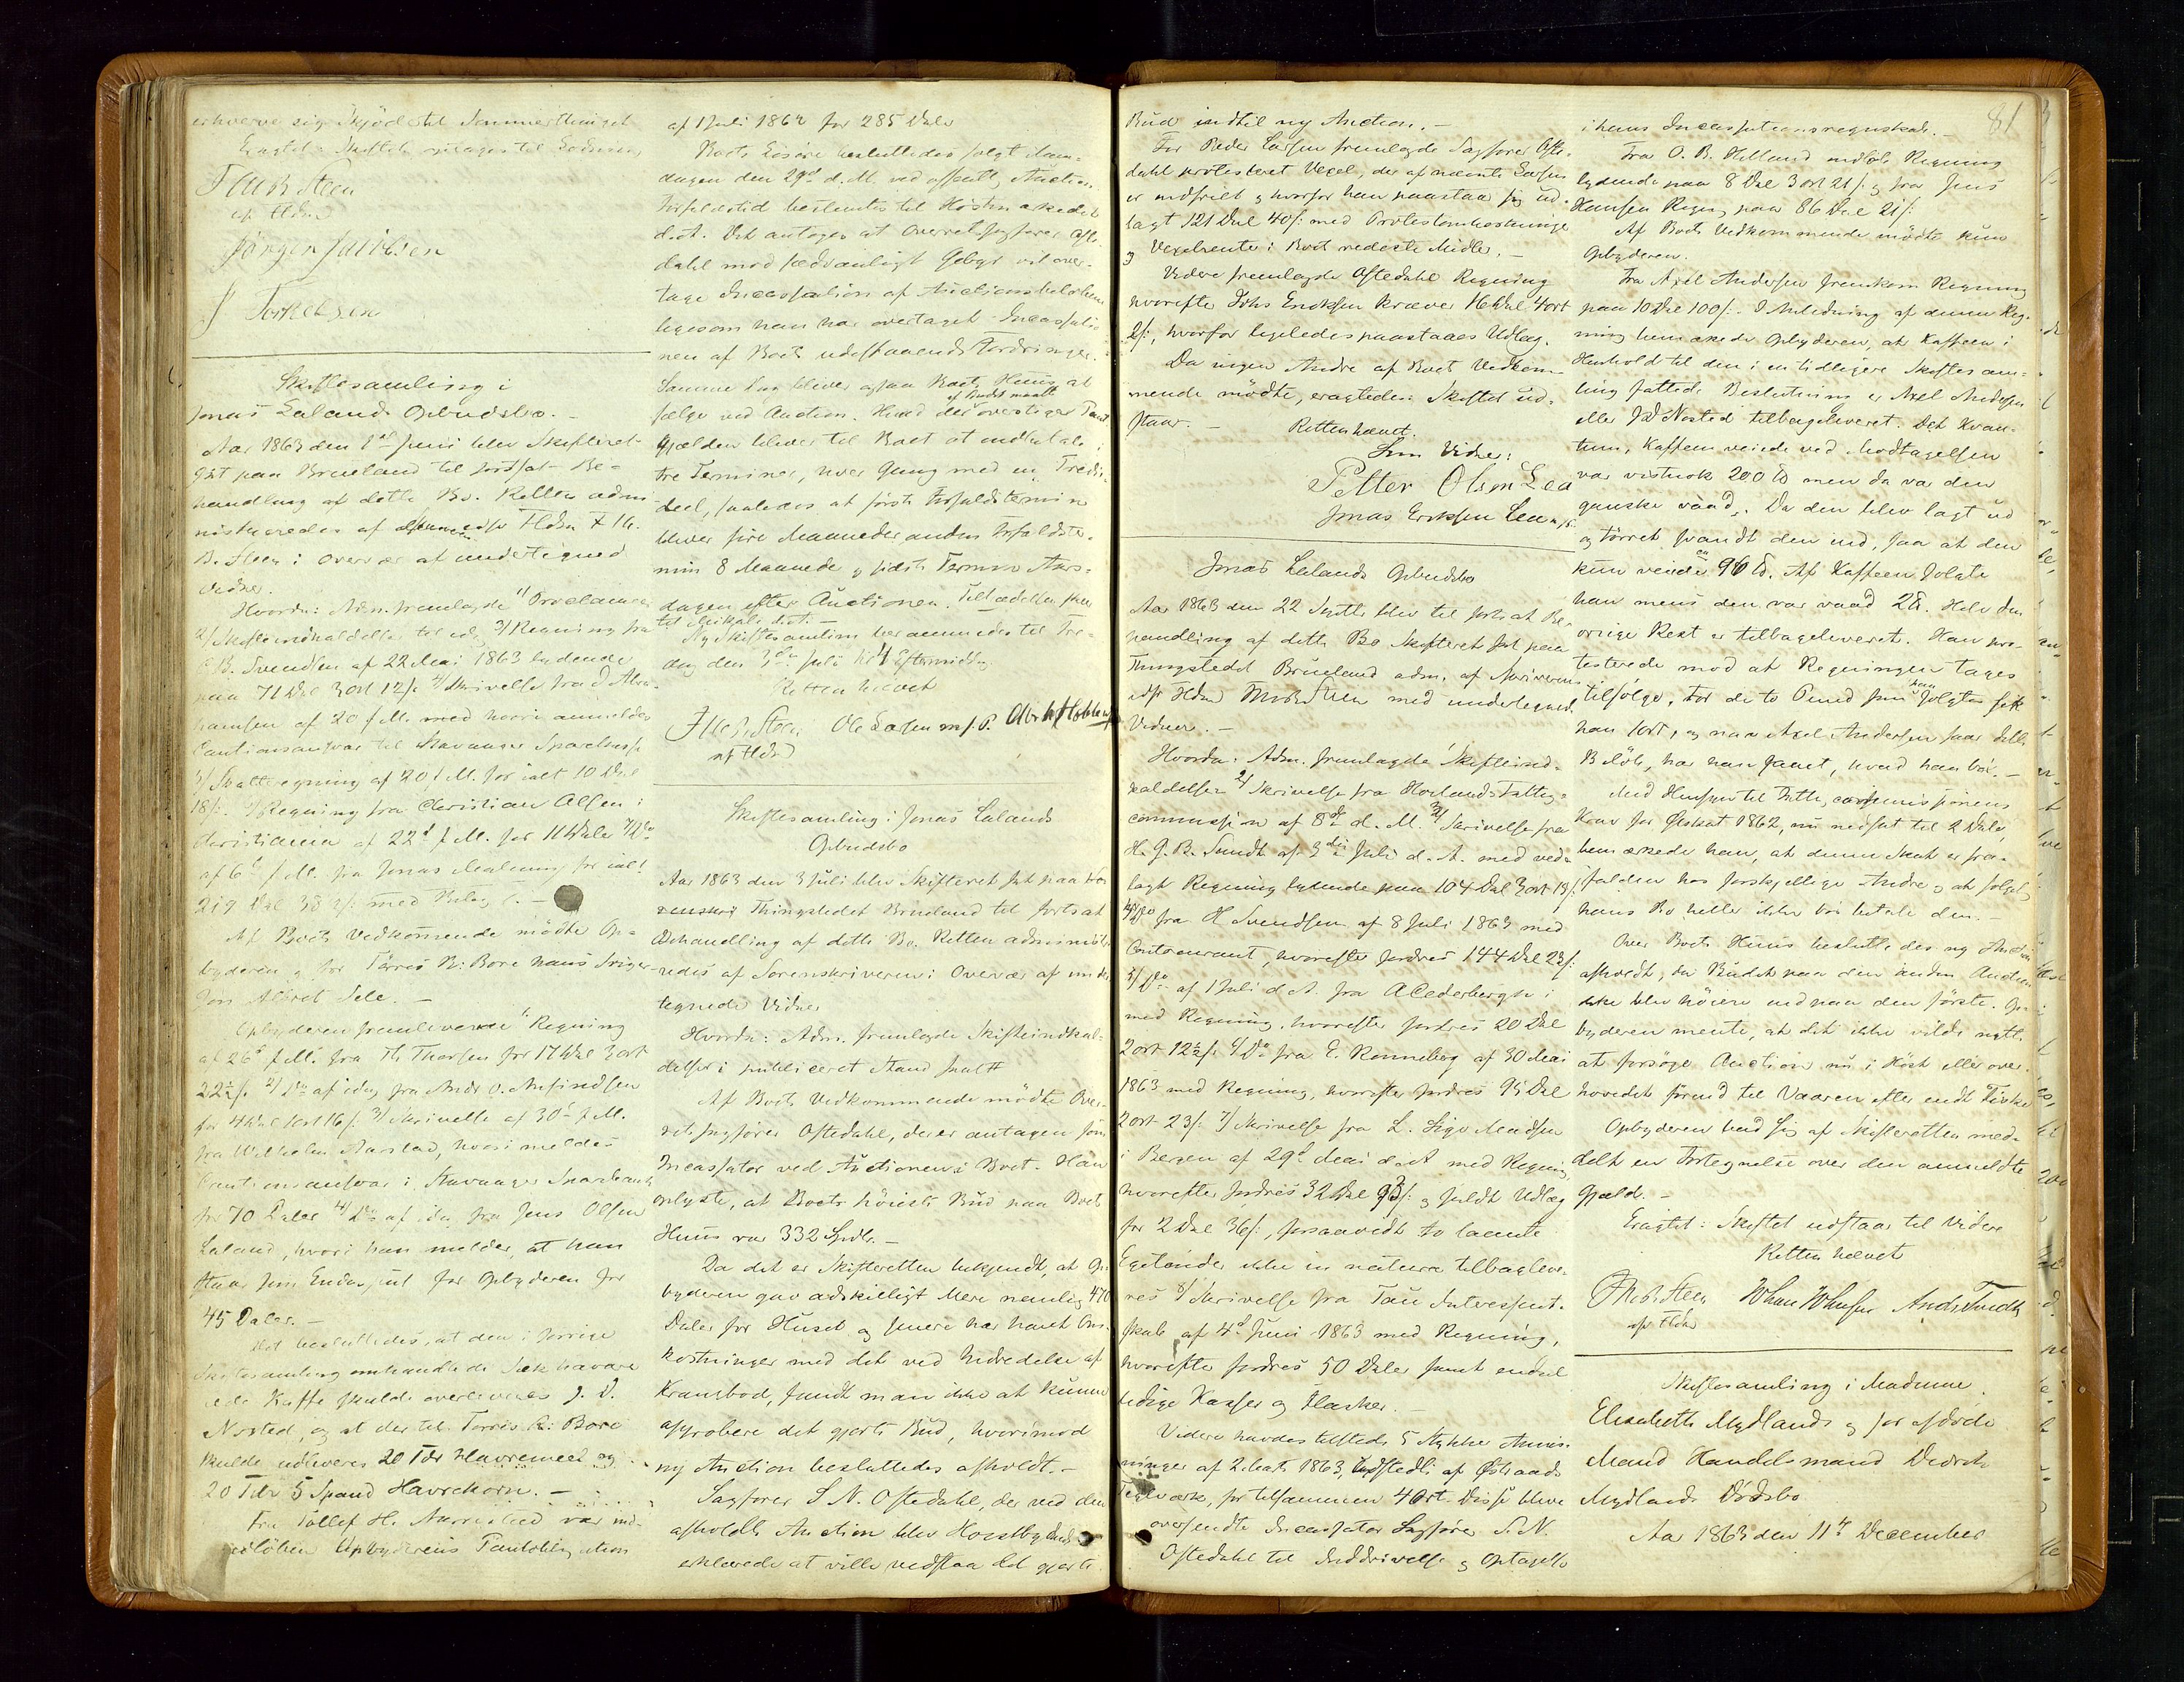 erhverve sig Skjöde til Sommerthinget
Eragtet: Skiftet optages til Sadeering
ThBSteen
cst Hdsv
Jörgen Jacobsen
J Torkelsen
Skiftesamling i
Jonas Lalands Opbudsbo. -
Aar 1863 den 1ste Juni blev Skifteret
sat paa Brueland til fortsat Be-
handling af dette Bo. Retten admi
nistreredes af
B. Steen i Overvær af undertegnede
Vidner.
Hvorda: Adm. fremlagde 1/ Proclama
2/ Skifteindkaldelse til idag 3/ Regning fra
B. Svendsen af 22 Mai 1863 lydende
paa 71 Dal 3 ort 12 s. 4/ Skrivelse fra J Abra-
hamsen af 20 f. M. med hvori anmeldes
Cautionsansvar til Stavanger Sparekasse
5/ Skatteregning af 20 f. M. for ialt 10 Dal
18 s. 6/ Regning fra Christian Olsen i
Christiania af 22d f. M. for 11 Dale 7/ Do
af 6t f. M. fra Jonas Malening for ialt
219 Dal 38 s. med Bilag. -
Af Boets Vedkommende mödte Op-
byderen og for Torres R. Bore hans Sviger-
sön Albret Sele. -
Opbyderen fremleverede 1/ Regning
af 26d f. M. fra Th Thorsen for 17 Dal 3 ort
22½ s. 2/ Do af idag fra Andr O. Anfindsen
for 4 Dal 1 ort 16 s. 3/ Skrivelse af 30t f. M.
fra Wilhelm Aarstad, hvori meldes
Cautionsansvar i Stavanger Sparebank
for 70 Daler 4/ Do af idag fra Jens Olsen
Laland, hvori han melder, at han
staar som Endossent for Opbyderen for
45 Daler. -
Det besluttedes, at den i forrige
Skiftesamling omhandlede Sæk havare
rede Kaffe skulde overleveres J. D.
Nosted, og at der til Torres R. Bore
skulde udleveres 20 Tdr Havremeel og
20 Tdr 5 Spand Havrekorn. -
Fra Tollef H. Aarrestad var ind-
löben Opbyderens Panteobligation
af 1 Juli 1862 for 285 Daler
Boets Lösöre besluttedes solgt Man-
dagen den 29de d. M. ved offentlig Auction.
Forfaldstid bestemtes til Höstmarkedet
d. A. Det antages at Overretssagförer Ofte
dahl mod sædvanligt Gebyr vil over-
tage Incassation af Auctionsbelöbene
ligesom han har overtaget Incassatio
nen af Boets udestaaende Fordringer.
Samme Dag bliver ogsaa Boets Huus at
sælge ved Auction. Hvad der af Budet maatte overstiger Pant
Gjælden bliver til Boet at indbetale i
tre Terminer, hver Gang med en Tredie
deel, saaledes at förste Forfaldstermin
bliver fire Maaneder anden Forfaldster-
min 8 Maaneder og sidste Termin Aars-
dagen efter Auctionen. Tiltrædelsen sker
til Mikkeli d. A. -
Ny Skiftesamling berammedes til Fre-
dag den 3die Juli Kl 4 Eftermiddag
Retten hævet
ThBSteen Ole Larsen m. f. P.
cst Hdsv
Skiftesamling i Jonas Lalands
Opbudsbo
Aar 1863 den 3 Juli blev Skifteret sat paa
Thingstedet Brueland til fortsat
Behandling af dette Bo. Retten administre
redes af Sorenskriveren i Overvær af under
tegnede Vidner
Hvorda: Adm. fremlagde Skifteindkal-
delser i publiceret Stand
Af Boets Vedkommende mödte Over-
retssagförer Oftedahl, der er antagen som
Incassator ved Auctionen i Boet. Han
oplyste, at Boets höieste Bud paa Boets
Huus var 332 Spdlr. -
Da det er Skifteretten bekjendt, at Op-
byderen gav adskilligt Mere nemlig 470
Daler for Huset og senere har havt Om-
kostninger med det ved Indredelse af
Krambod, fandt man ikke at kunne
approbere det gjorte Bud, hvorimod
ny Auction besluttedes afholdt. -
Sagförer S N. Oftedahl, der ved den
afholdte Auction blev Hoiestbydende
erklærede at ville vedstaa det gjorte
Bud indtil ny Auction. -
For Peder Larsen fremlagde Sagförer Ofte-
dahl protesteret Vexel, der af nævnte Larsen
er indfriet og hvorfor han paastaar sig ud-
lagt 121 Dal 40 s. med Protestomkostninger
og Vexelrenter i Boets redeste Midler. -
Videre fremlagde Oftedahl Regning
hvorefter Johs Endresen kræver 16 Dal 4 ort
2 s., hvorfor ligeledes paastaaes Udlæg.
Da ingen Andre af Boets Vedkom-
mende mödte, eragtedes: Skiftet ud-
staar. - Retten hævet.
Som Vidner:
Petter Olsen Lea
Jonas Eriksen Lea m. f. P.
Jonas Lalands Opbudsbo
Aar 1863 den 22 Septbr blev til fortsat Be-
handling af dette Bo Skifteret sat paa
Thingstedet Brueland adm. af Skriveren
edsv Hdsv ThBSteen med undertegnede
Vidner. -
Hvorda: Adm. fremlagde 1/ Skifteind-
kaldelse 2/ Skrivelse fra Hovlands Fattig-
commission af 8de d. M. 3/ Skrivelse fra
H. G. B. Sundt af 3die Juli d. A. med ved-
lagt Regning lydende paa 104 Dal 3 ort 13 s.
4/ Do fra H Svendsen af 8 Juli 1863 med
Contocurant, hvorefter fordres 144 Dal 23 s.
5/ Do af 1 Juli d A. fra A Cederbergh i
med Regning, hvorefter fordres 20 Dal
2 ort 12½ s. 6/ Do fra E. Ronneberg af 30 Mai
1863 med Regning, hvorefter fordres 95 Dal
2 ort 23 s. 7/ Skrivelse fra L. Sigv Madsen
i Bergen af 29d Mai d. A. med Regning,
hvorefter fordres 32 Dal 93 s. og fuldt Udlæg
for 2 Dal 36 s., forsaavidt to laante
Egetönder ikke in natura tilbageleve-
res 8/ Skrivelse fra Tau Interessent-
skab af 4d Juni 1863 med Regning,
hvorefter fordres 50 Daler samt endeel
ledige Kasser og Flasker. -
Videre havdes tilstede 5 Stykker Anvis-
ninger af 2 Marts 1863, udstedte af Östraads
Teglværk, for tilsammen 4 ort. Disse bleve
oversendte Incassator Sagförer S. N.
Oftedahl til Inddrivelse og Optagelse
81
i hans Incassationsregnskab. -
Fra O. B. Helland indlöb Regning
lydende paa 8 Dal 3 ort 21 s. og fra Jens
Hansen Regning paa 86 Dal 21 s.
Af Boets Vedkommende mödte kun
Opbyderen.
Fra Axel Andersen fremkom Regning
paa 10 Dal 100 s. I Anledning af denne Reg-
ning bemærkede Opbyderen, at Kaffeen i
Henhold til den i en tidligere Skiftesam-
ling fattede Beslutning er Axel Andersen
eller J D Nosted tilbageleveret. Det Kvan-
tum, Kaffeen veiede ved Modtagelsen
var vistnok 200 ℔ men da var den
ganske vaad. Da den blev lagt ud
og törret svandt den ind, saa at den
kun veiede 96 ℔. Af Kaffeen solgte
han mens den var vaad 2 ℔. Hele den
övrige Rest er tilbageleveret. Han pro-
testerede mod at Regningen tages
tilfölge, for de to Pund som han solgte fik
han 1 ort, og naar Axel Andersen faar dette
Belöb, har han faaet, hvad han bör. -
Med Hensyn til Fattigcommissionens
Krav for Ölskat 1862, nu nedsat til 2 Daler,
bemærkede han, at denne Skat er fra-
falden hos forskjellige Andre og at fölgelig
hans Bo heller ikke bör betale den.
Over Boets Huus besluttedes ny Auction
afholdt, da Budet paa den anden Auction
ikke blev höiere end paa den förste. Op-
byderen mente, at det ikke vilde nytte
at forsöge Auction nu i Höst eller over-
hovedet förend til Vaaren eller endt Fiske
Opbyderen bad sig af Skifteretten med-
delt en Fortegnelse over den anmeldte
Gjæld. -
Eragtet: Skiftet udstaar til Videre
Retten hævet
ThBSteen Johan Johnsen Andr Tvedt
cst Hdsv
Skiftesamling i Madame
Elisabeth Mydlands og for afdöde
Mand Handelsmand Diderik
Mydlands Dödsbo
Aar 1863 den 11te December